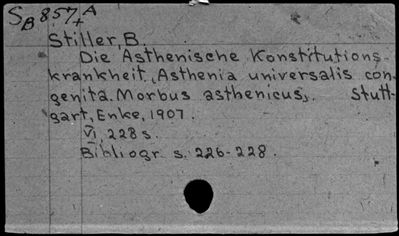 SB 857+A
Stiller, B.
Die Asthenische Konstitutions-
krankheit. (Asthenia universalis con-
genita. Morbus asthenicus). Stutt-
gart, Enke, 1907.
VI, 228 s.
Bibliogr. s. 226-228.